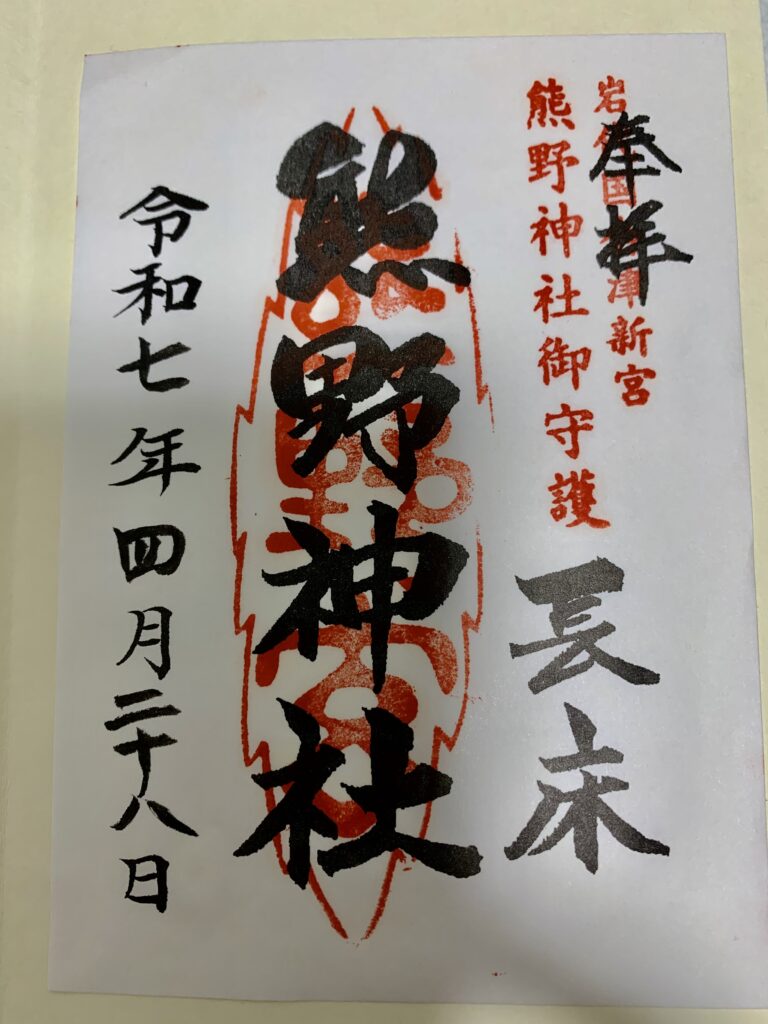 奉拝
岩代国会津新宮
熊野神社御守護
長床
熊野神社
令和七年四月二十八日